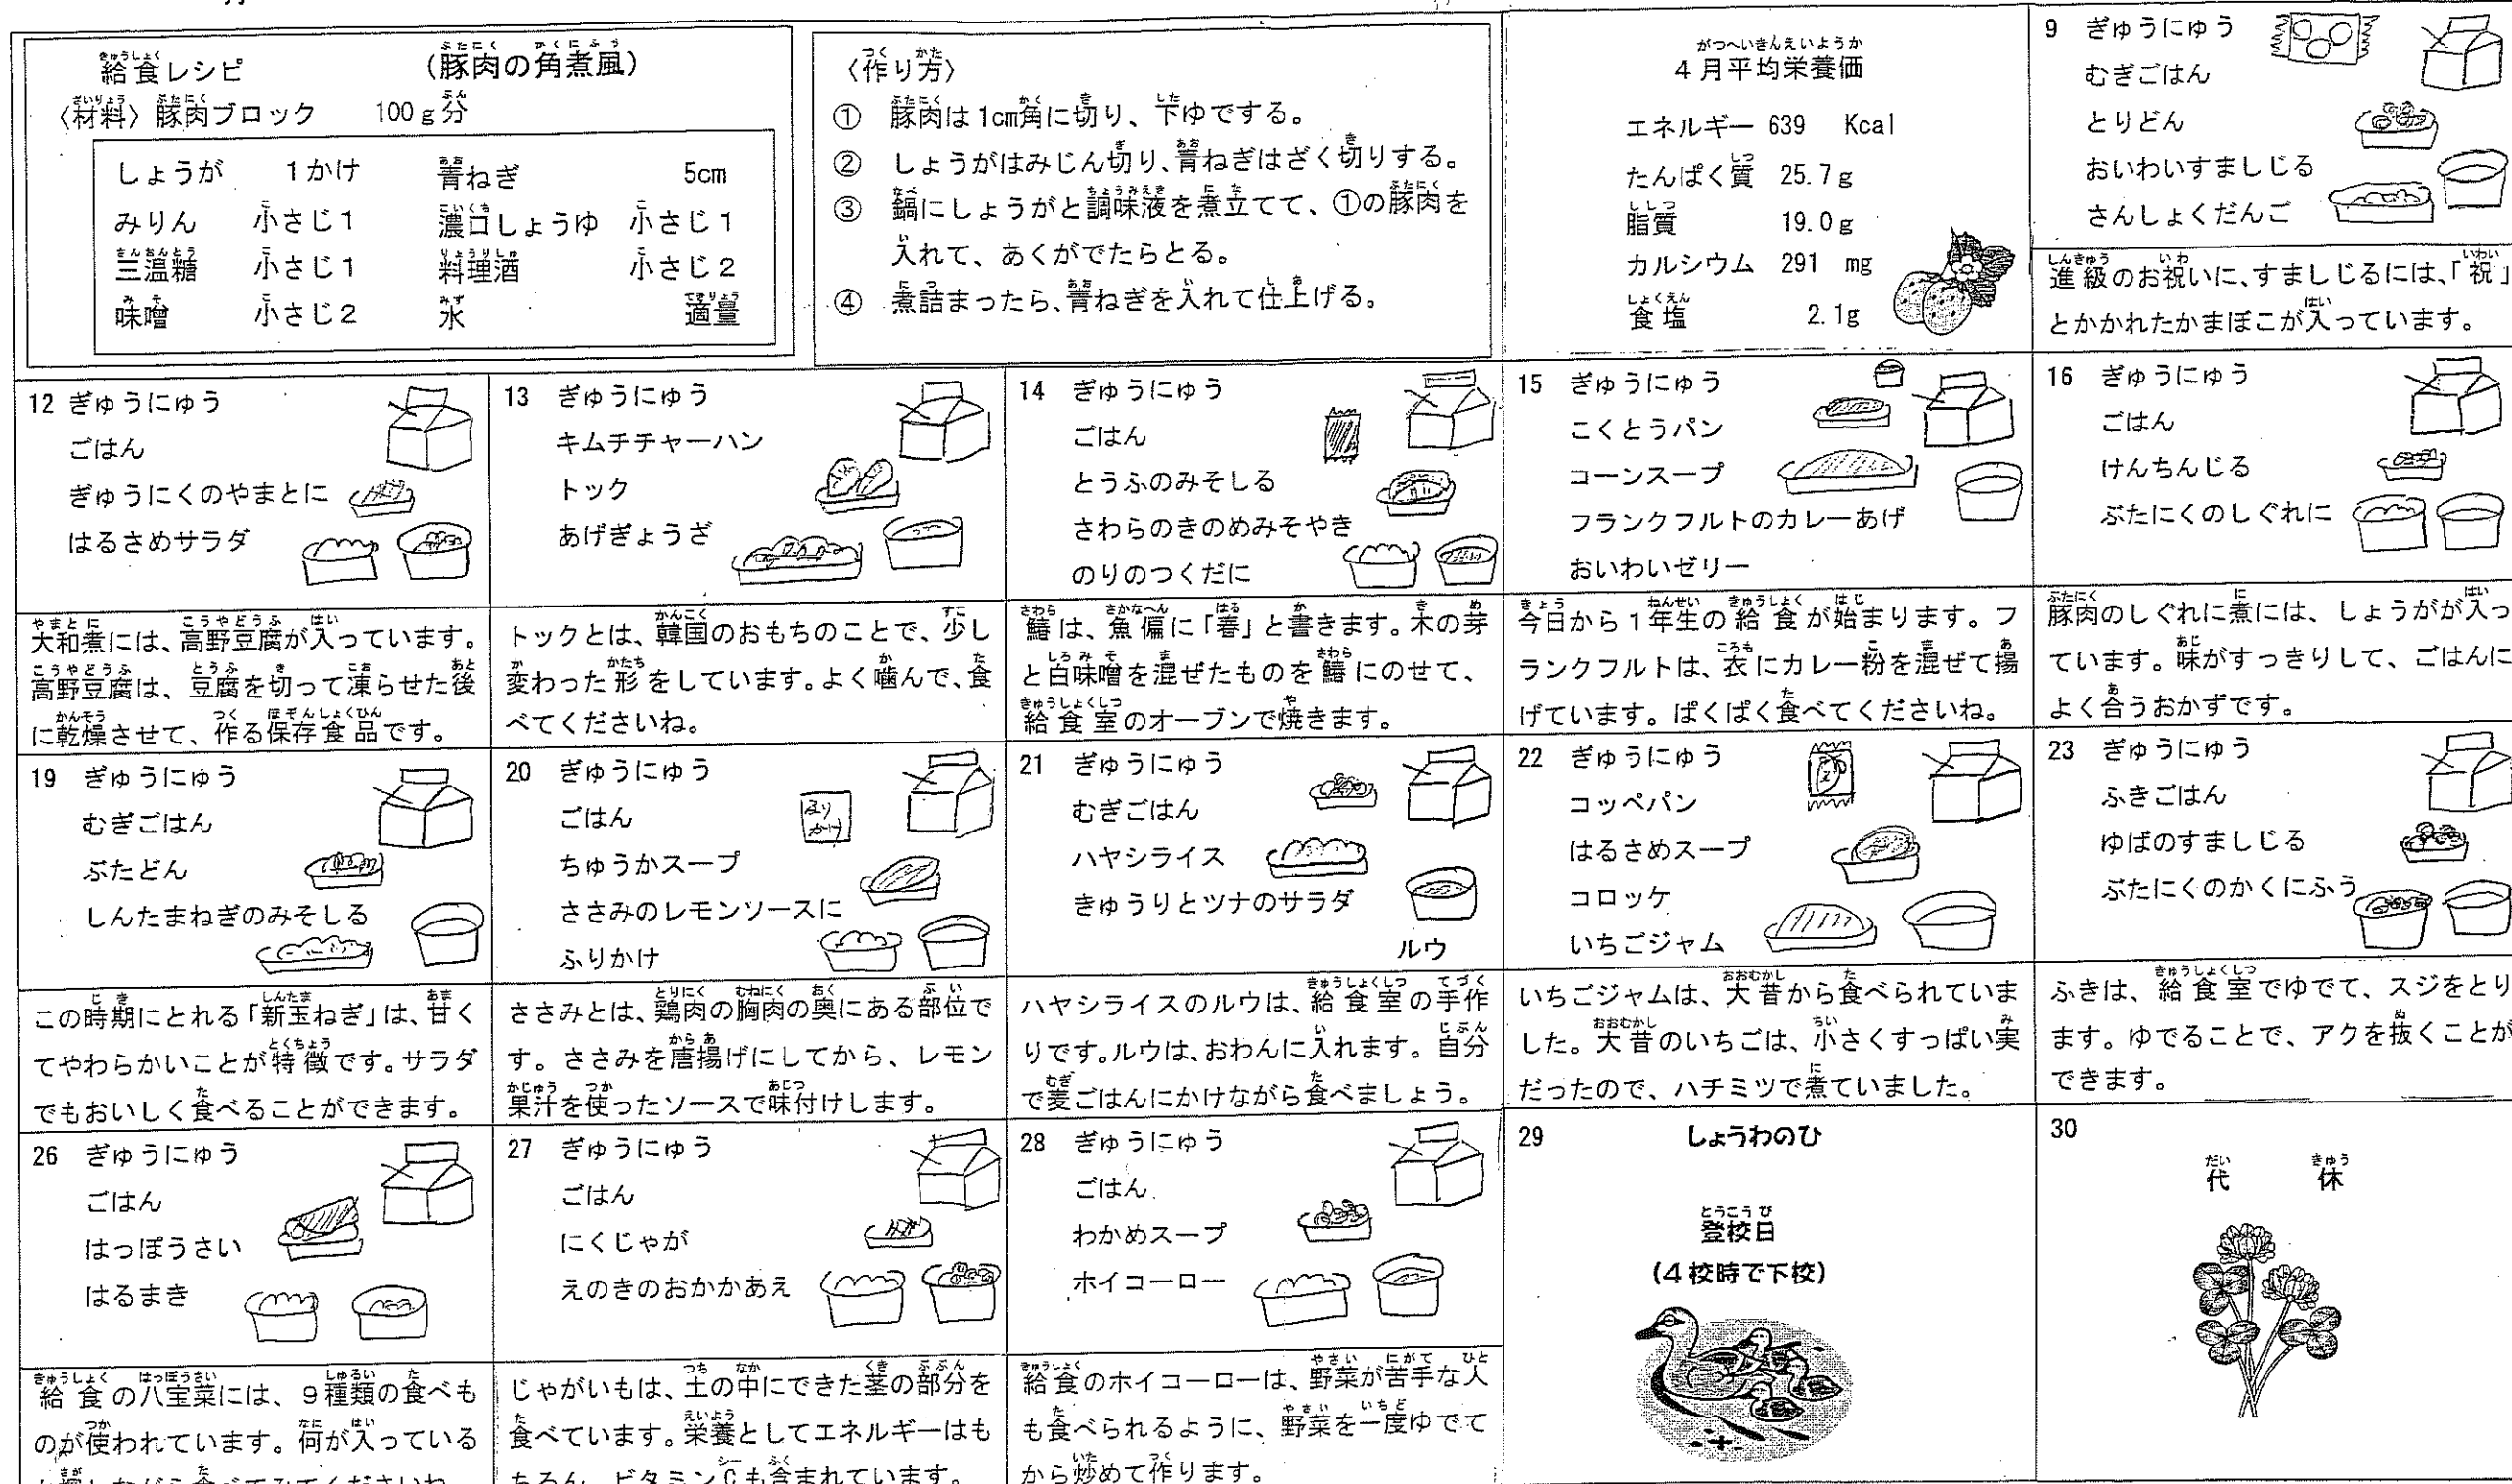 給食レシピ (豚肉の角煮風)
〈材料〉豚肉ブロック 100g分
しょうが 1かけ 青ねぎ 5cm
みりん 小さじ1 濃口しょうゆ 小さじ1
三温糖 小さじ1 料理酒 小さじ2
味噌 小さじ2 水 適量
〈作り方〉
① 豚肉は1cm角に切り、下ゆでする。
② しょうがはみじん切り、青ねぎはざく切りする。
③ 鍋にしょうがと調味液を煮立てて、①の豚肉を
入れて、あくがでたらとる。
④ 煮詰まったら、青ねぎを入れて仕上げる。
4月平均栄養価
エネルギー 639 Kcal
たんぱく質 25.7g
脂質 19.0g
カルシウム 291 mg
食塩 2.1g
9 ぎゅうにゅう
むぎごはん
とりどん
おいわいすましじる
さんしょくだんご
進級のお祝いに、すましじるには、「祝」
とかかれたかまぼこが入っています。
12 ぎゅうにゅう
ごはん
ぎゅうにくのやまとに
はるさめサラダ
大和煮には、高野豆腐が入っています。
高野豆腐は、豆腐を切って凍らせた後
に乾燥させて、作る保存食品です。
13 ぎゅうにゅう
キムチチャーハン
トック
あげぎょうざ
トックとは、韓国のおもちのことで、少し
変わった形をしています。よく噛んで、食
べてくださいね。
14 ぎゅうにゅう
ごはん
とうふのみそしる
さわらのきのめみそやき
のりのつくだに
鰆は、魚偏に「春」と書きます。木の芽
と白味噌を混ぜたものを鰆にのせて、
給食室のオーブンで焼きます。
15 ぎゅうにゅう
こくとうパン
コーンスープ
フランクフルトのカレーあげ
おいわいゼリー
今日から1年生の給食が始まります。フ
ランクフルトは、衣にカレー粉を混ぜて揚
げています。ぱくぱく食べてくださいね。
16 ぎゅうにゅう
ごはん
けんちんじる
ぶたにくのしぐれに
豚肉のしぐれに煮には、しょうがが入っ
ています。味がすっきりして、ごはんに
よく合うおかずです。
19 ぎゅうにゅう
むぎごはん
ぶたどん
しんたまねぎのみそしる
この時期にとれる「新玉ねぎ」は、甘く
てやわらかいことが特徴です。サラダ
でもおいしく食べることができます。
20 ぎゅうにゅう
ごはん
ちゅうかスープ
ささみのレモンソースに
ふりかけ
ふりかけ
ささみとは、鶏肉の胸肉の奥にある部位で
す。ささみを唐揚げにしてから、レモン
果汁を使ったソースで味付けします。
21 ぎゅうにゅう
むぎごはん
ハヤシライス
きゅうりとツナのサラダ
ルウ
ハヤシライスのルウは、給食室の手作
りです。ルウは、おわんに入れます。自分
で麦ごはんにかけながら食べましょう。
22 ぎゅうにゅう
コッペパン
はるさめスープ
コロッケ
いちごジャム
いちごジャムは、大昔から食べられていま
した。大昔のいちごは、小さくすっぱい実
だったので、ハチミツで煮ていました。
23 ぎゅうにゅう
ふきごはん
ゆばのすましじる
ぶたにくのかくにふう
ふきは、給食室でゆでて、スジをとり
ます。ゆでることで、アクを抜くことが
できます。
26 ぎゅうにゅう
ごはん
はっぽうさい
はるまき
給食の八宝菜には、9種類の食べも
のが使われています。何が入っている
27 ぎゅうにゅう
ごはん
にくじゃが
えのきのおかかあえ
じゃがいもは、土の中にできた茎の部分を
食べています。栄養としてエネルギーはも
ちろん、ビタミンCも含まれています。
28 ぎゅうにゅう
ごはん
わかめスープ
ホイコーロー
給食のホイコーローは、野菜が苦手な人
も食べられるように、野菜を一度ゆでて
から炒めて作ります。
29 しょうわのひ
登校日
(4校時で下校)
30
代休